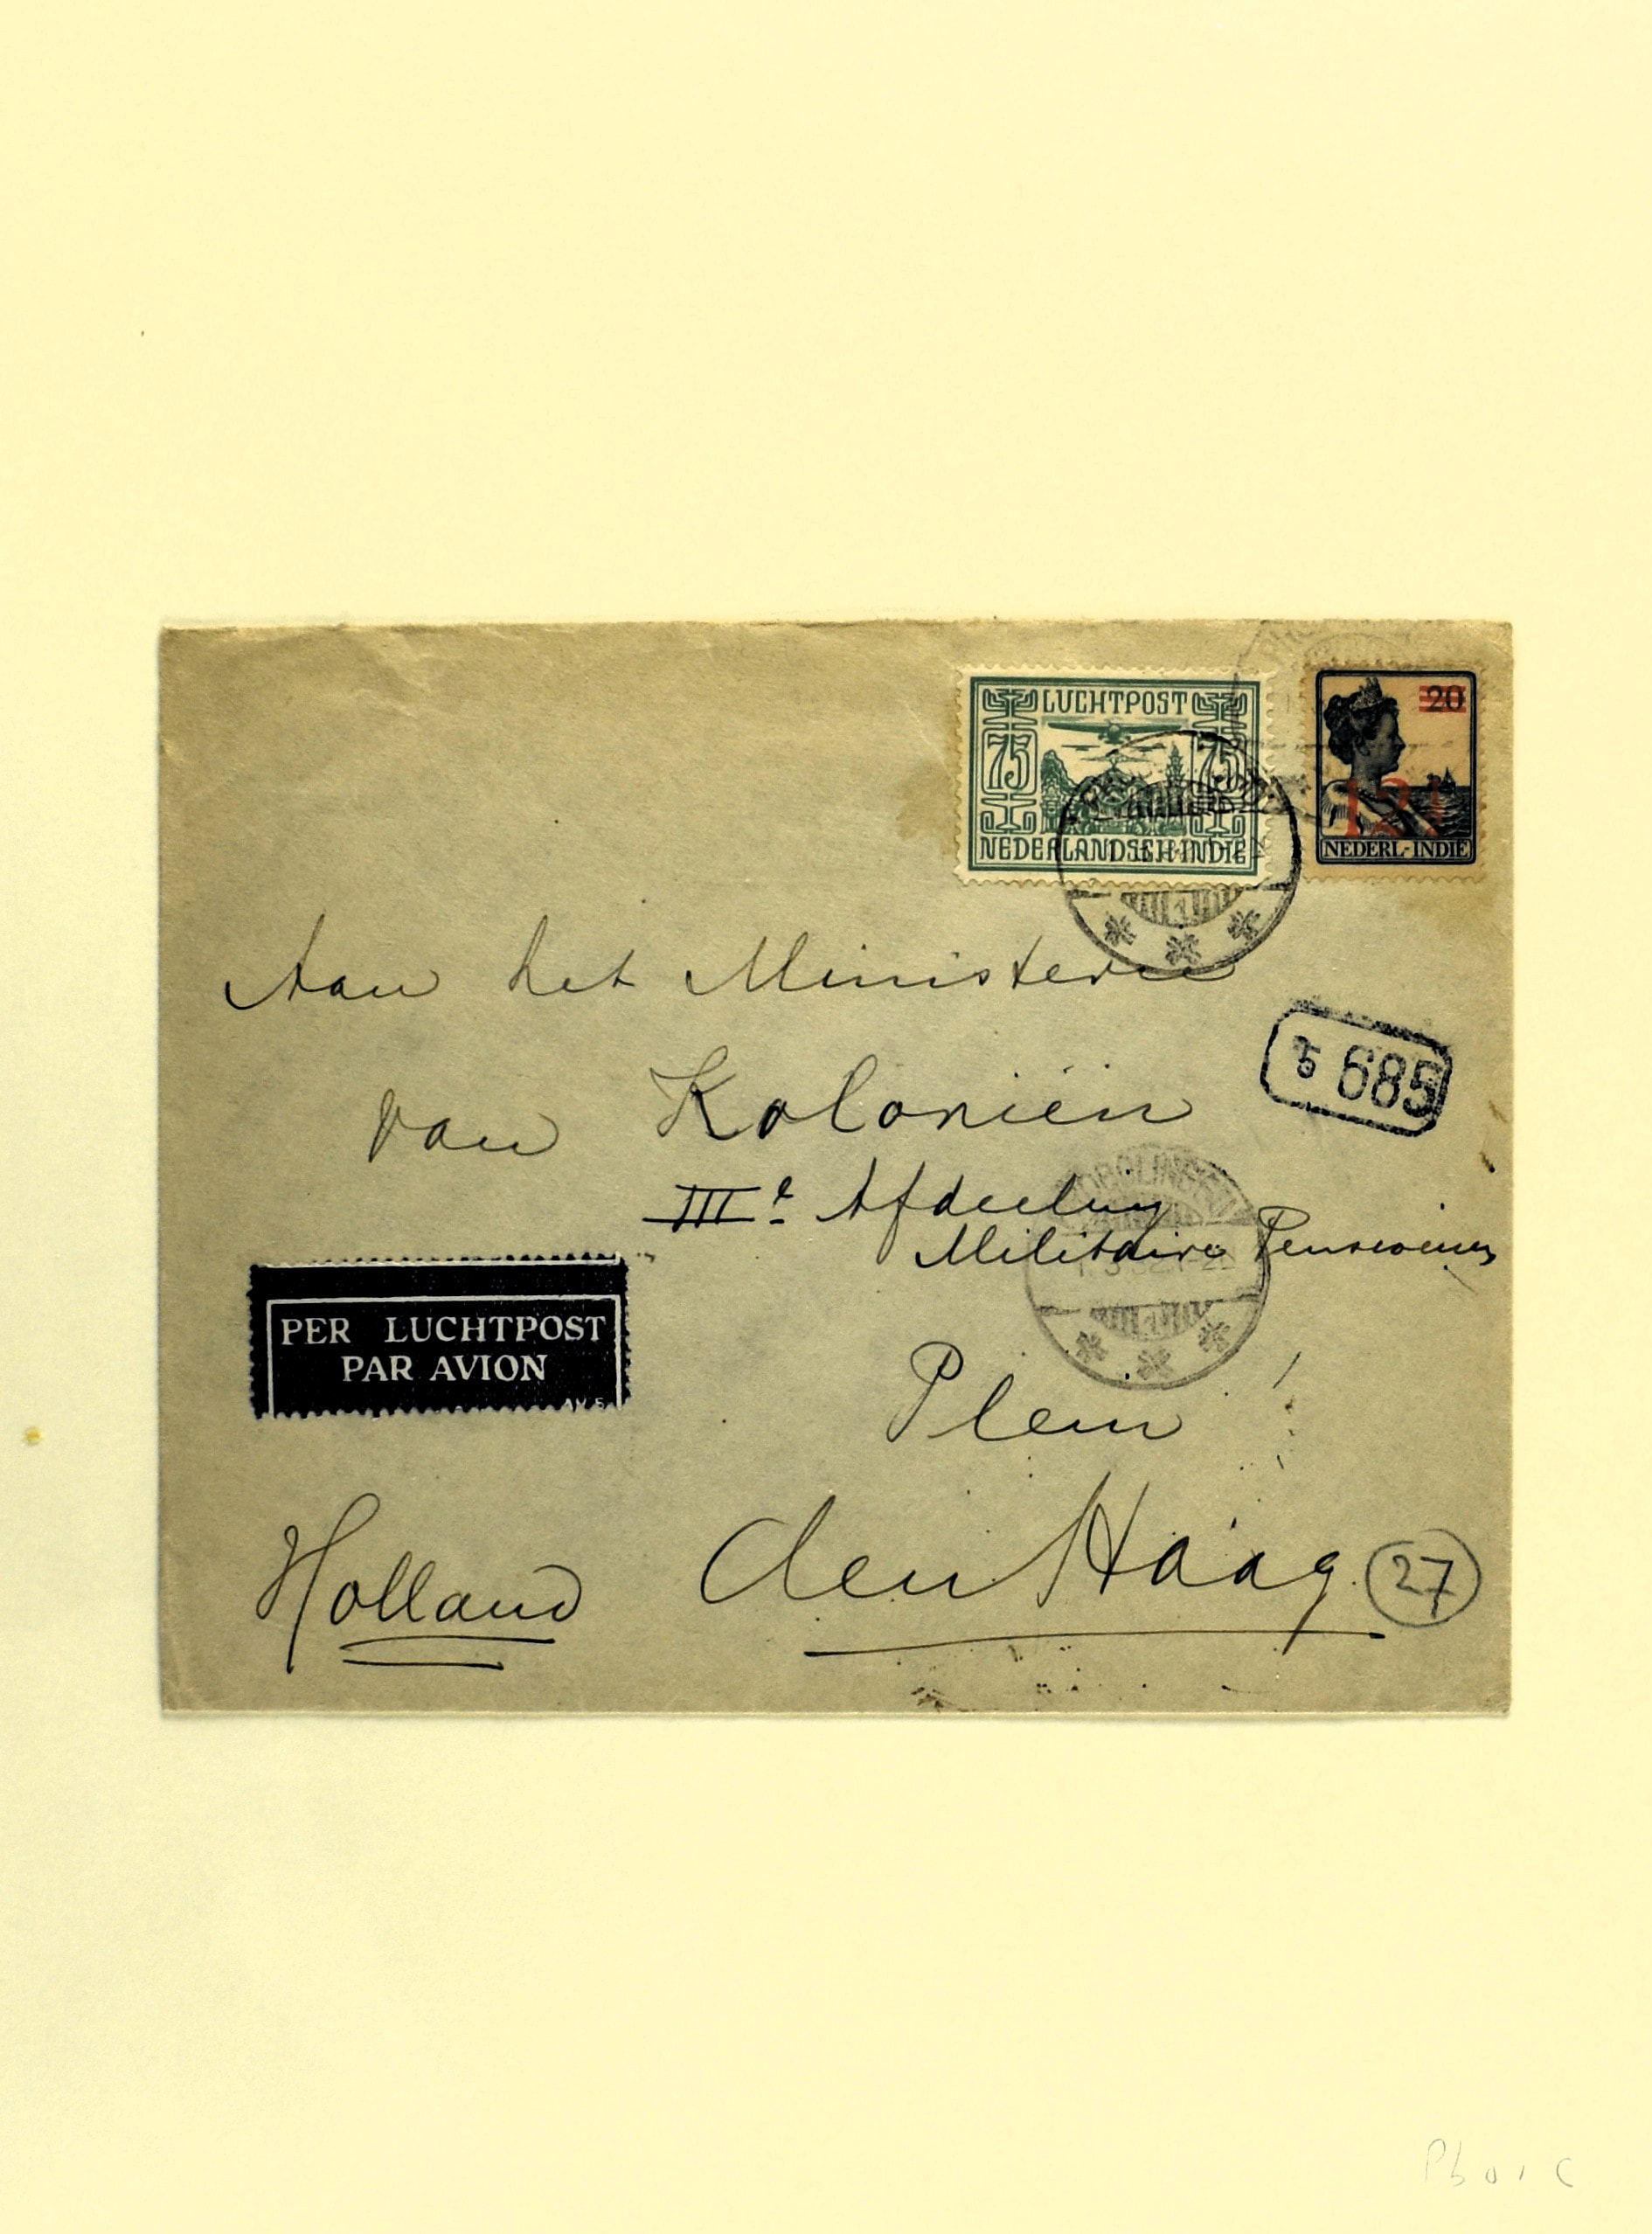 LUCHTPOST
75 75
NEDERLANDSCH-INDIE
20
12½
NEDERL-INDIE
Aan het Ministerie
van Koloniën
b 685
IIIe Afdeeling
Militaire Pensioenen
PROBOLINGGO
PER LUCHTPOST
PAR AVION
Plein
Holland
den Haag
27